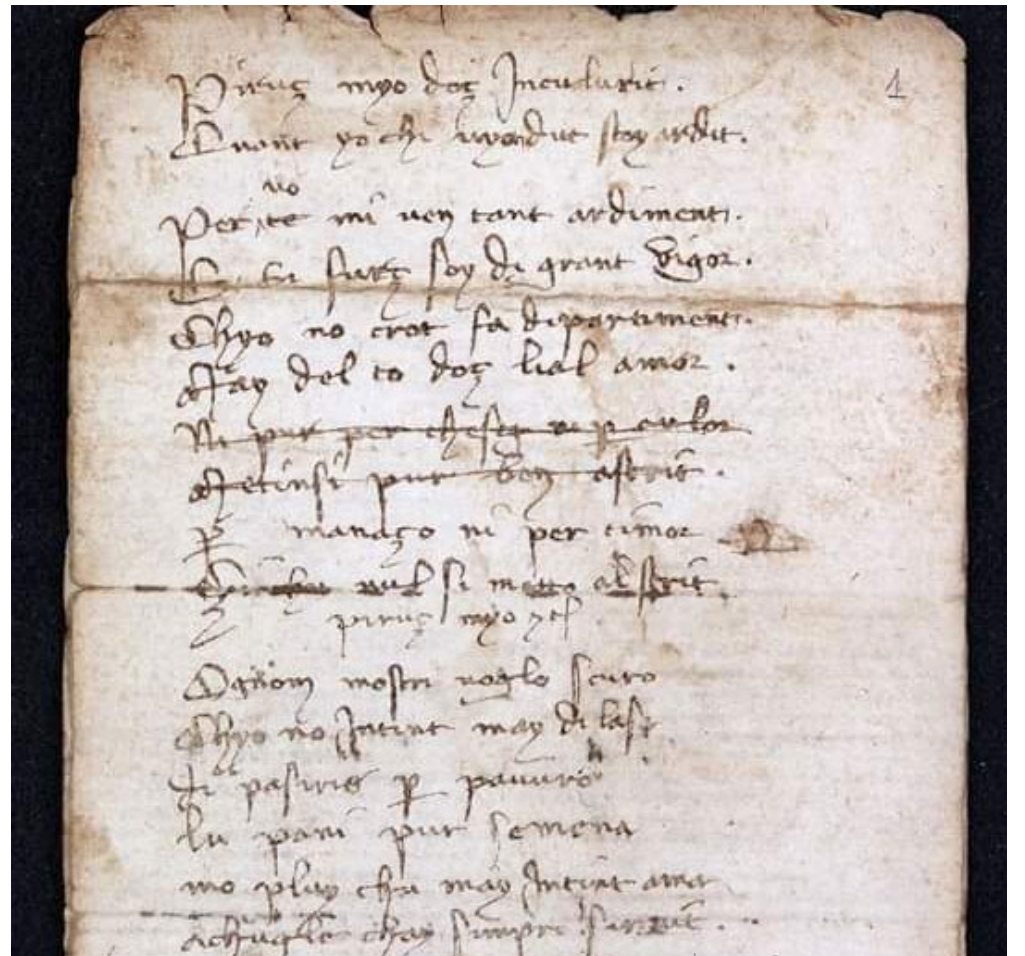 Piruç myo doç Inculurit.
1
Quant yo chi viot dut stoy ardit.
no
Per te mi ven tant ardiment.
E tu furç soy di grant vigor.
Chyo no crot fa dipartiment.
May del to doç lial amor.
Ni pur per chest ni per
pur ben astrit.
per manaço ni per timor
si metto al strit.
piruç myo etc
Ognom mostri voglo scuro
Chyo no Intint may di lasa
di pasiris per pavuro
lu pani pur semena
mo play cha may Intint ama
achuglo chay simpri sirvit.